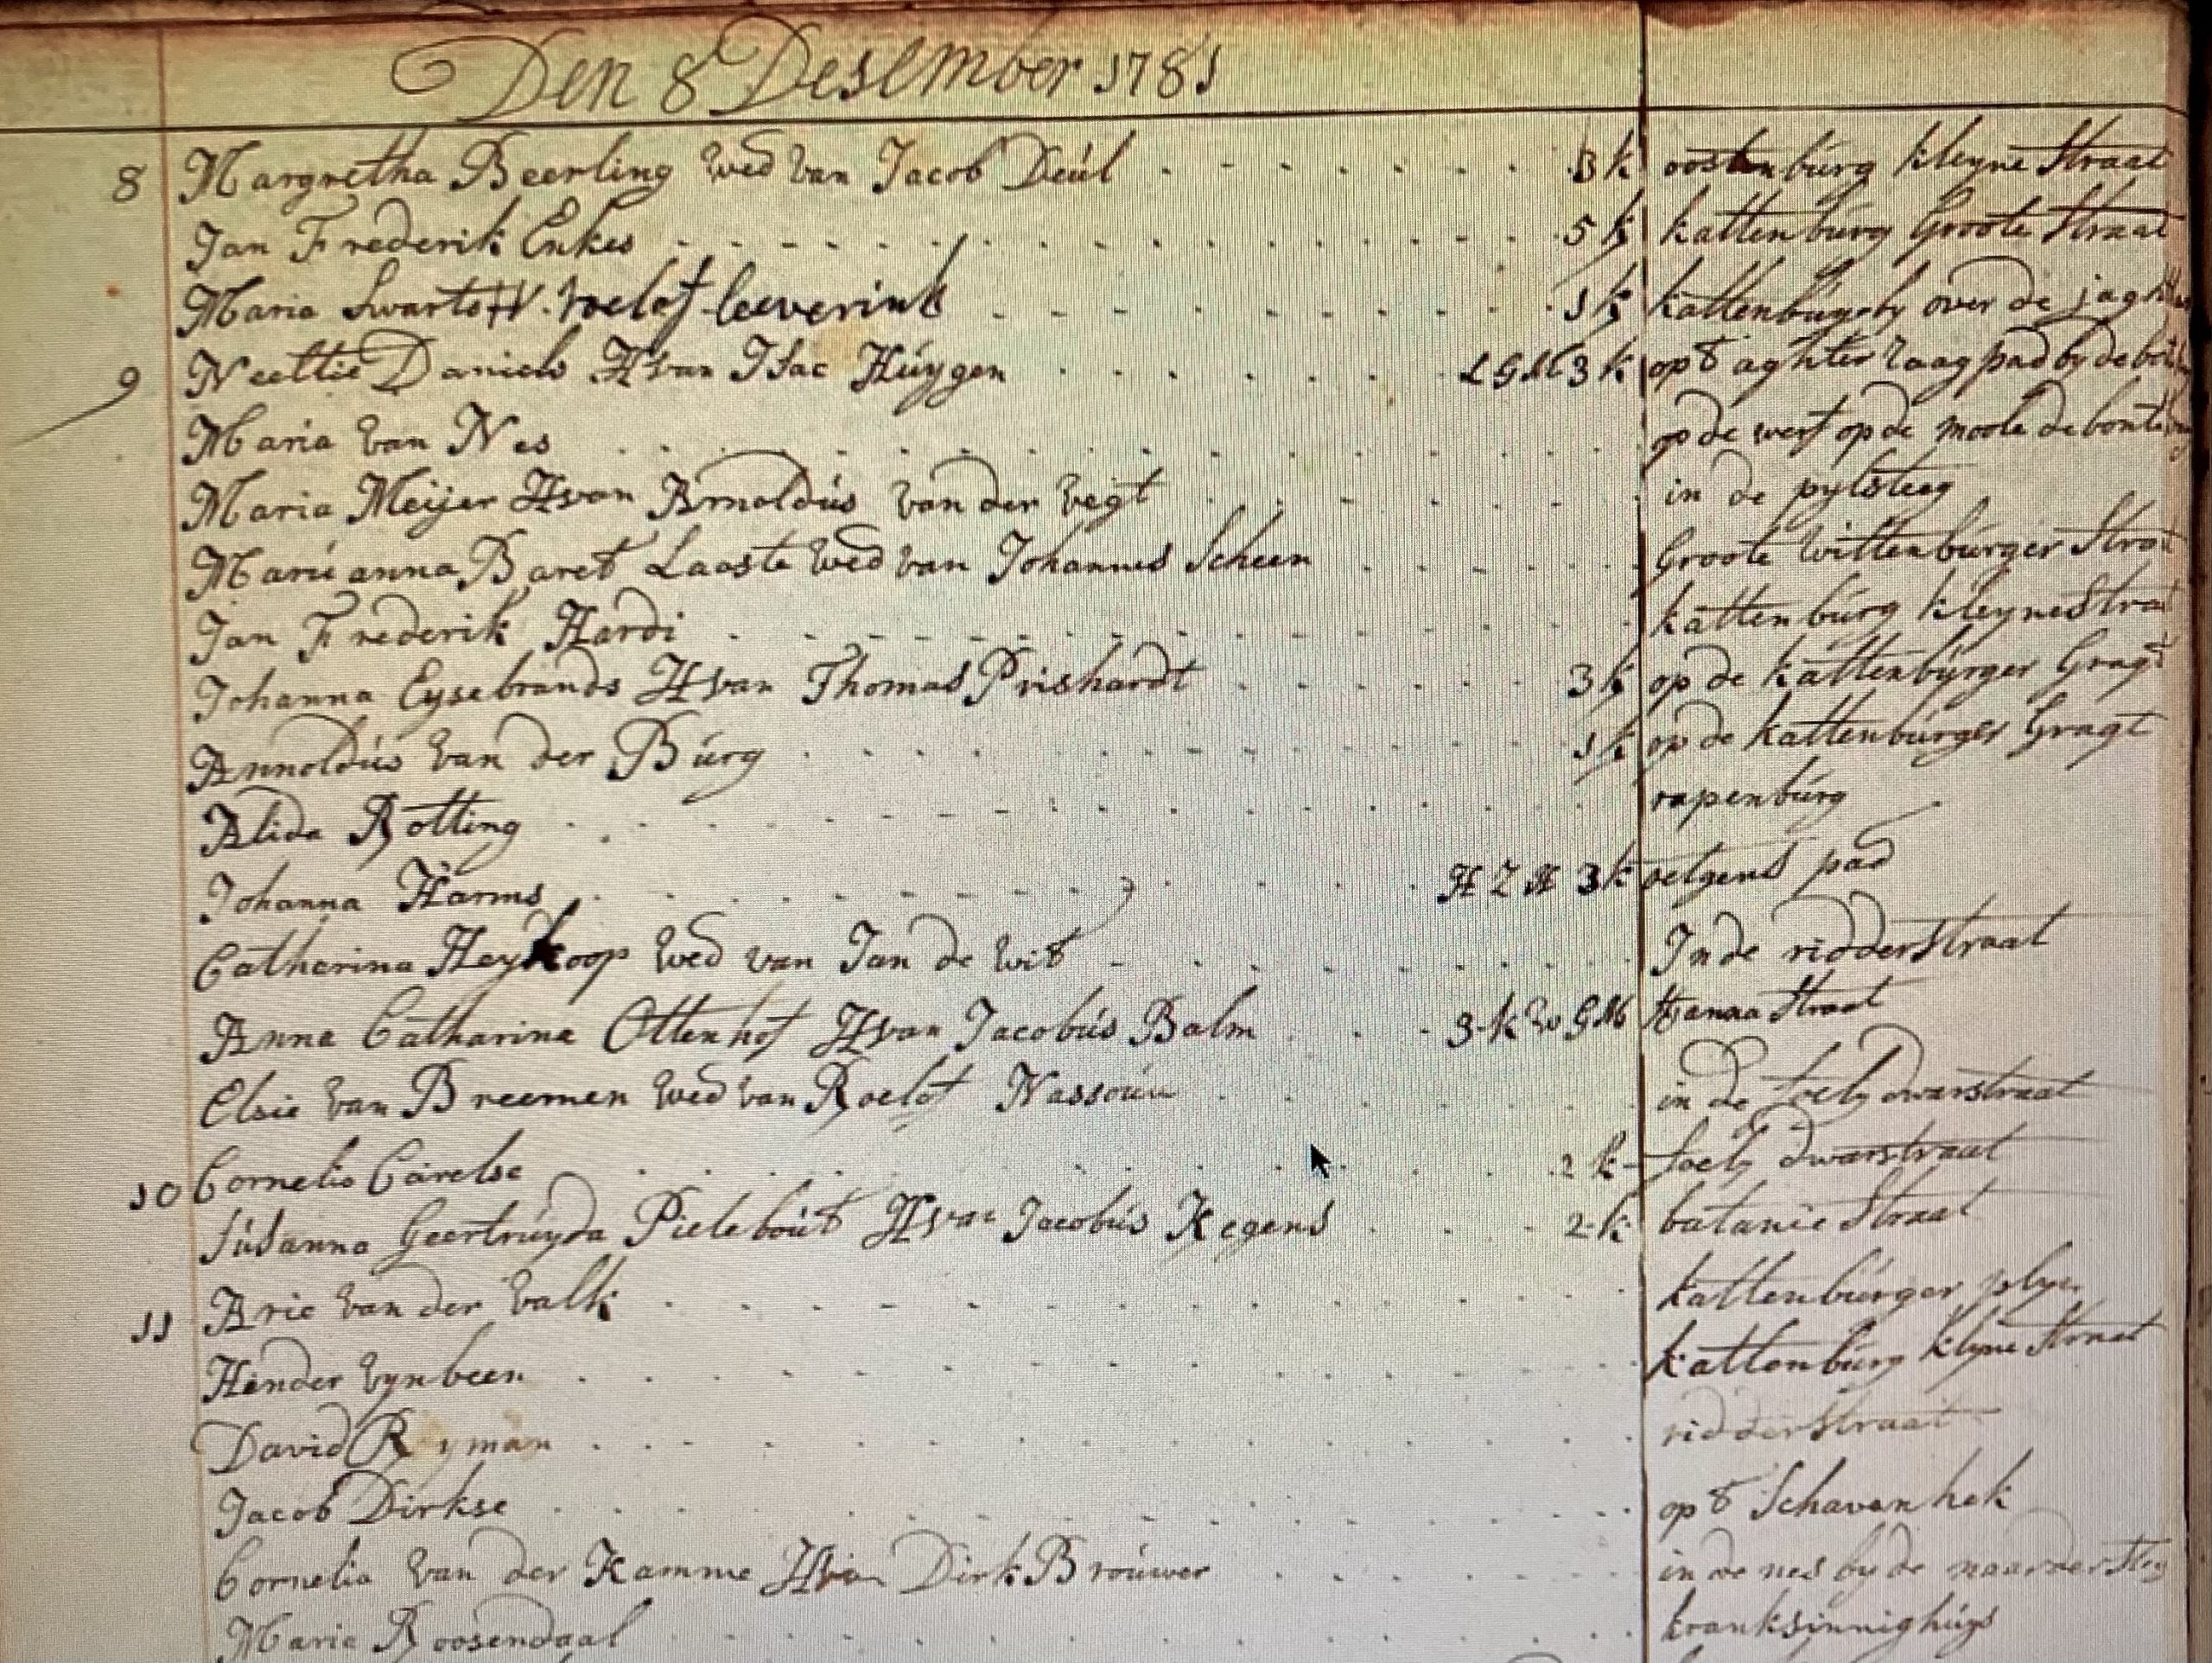 Den 8 Desember 1781
8 Margretha Beerling Wed van Jacob Deúl 3 k oostenbúrg kleyne Straat
Jan Frederik Enkes 5 k kattenbúrg Groote Straat
Maria Swartoff. roelof leeverink 1 k kattenbúrg over de
9 Neeltie Daniels H van ISac Húygen L G M 3 k op t aghter raagpad by de
Maria van Nes op de werf op de moole de bonte
Maria Meijer H van Arnoldús van der Vegt in de pylsteeg
Marúanna Baret Laaste Wed van Johannes Scheen Groote Wittenbúrger Straat
Jan Frederik Hardi kattenbúrg kleyne Straat
Johanna Eysebrands H van Thomas Prishardt 3 k op de kattenbúrger Gragt
Arnoldús van der Búrg 1 k op de kattenbúrger Gragt
Alida Rotting rapenbúrg
Johanna Harms H Z H 3 k oetgens pad
Catharina Heykoop Wed van Jan de Wit In de ridderstraat
Anna Catharina Ottenhof H van Jacobús Balm 3 k W G M Straat
Elsie van Breemen Wed van Roelof Nassoúw in de foely dwarstraat
10 Cornelis Carelse 2 k foely dwarstraat
Súsanna Geertrúyda Pieleboút H van Jacobús Kegens 2 k batanie Straat
11 Arie van der Valk kattenbúrger plyn
Hender Vynbeen kattenbúrg klyne Straat
David Ryman ridderstraat
Jacob Dirkse op t Schavenhek
Cornelia van der Kamme H van Dirk Broúwer in de nes by de naarder Steg
Maria Roosendaal kranksinnighúys